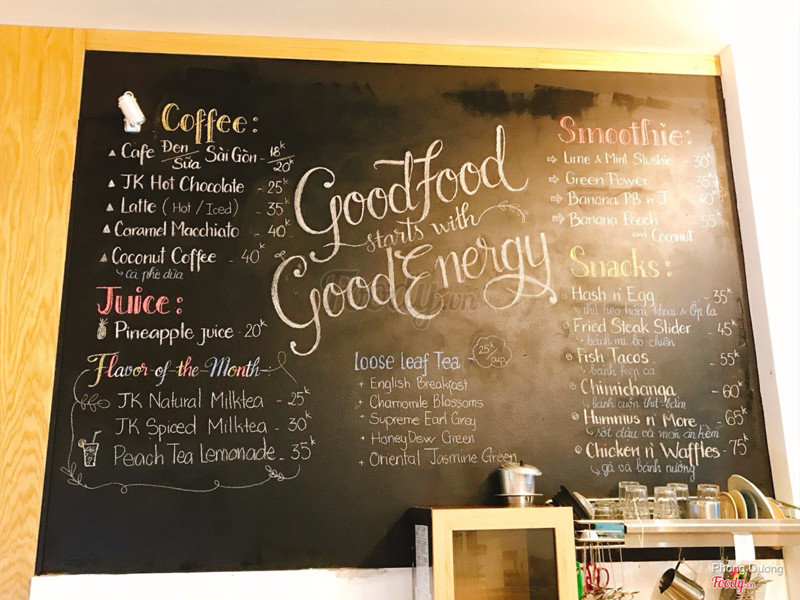 Coffee:
Cafe Đen / Sữa Sài Gòn - 18k / 20k
JK Hot Chocolate - 25k
Latte (Hot / Iced) - 35k
Caramel Macchiato - 40k
Coconut Coffee - 40k
cà phê dừa
Juice:
Pineapple juice - 20k
Flavor of the Month
JK Natural Milktea - 25k
JK Spiced Milktea - 30k
Peach Tea Lemonade - 35k
Good food
starts with
Good Energy
Loose Leaf Tea - 25k / cup
+ English Breakfast
+ Chamomile Blossoms
+ Supreme Earl Grey
+ HoneyDew Green
+ Oriental Jasmine Green
Smoothie:
Lime & Mint Slushie - 30k
Green Power - 35k
Banana PB n' J - 40k
Banana Peach - 55k
and Coconut
Snacks:
Hash n' Egg - 35k
thịt heo hầm khoai & ốp la
Fried Steak Slider - 45k
bánh mì bò chiên
Fish Tacos - 55k
bánh kẹp cá
Chimichanga - 60k
bánh cuốn thịt bằm
Hummus n' More - 65k
sốt đậu cà
ăn kèm
Chicken n' Waffles - 75k
gà và bánh nướng
Foody.vn
Phong Dương
Foody.vn